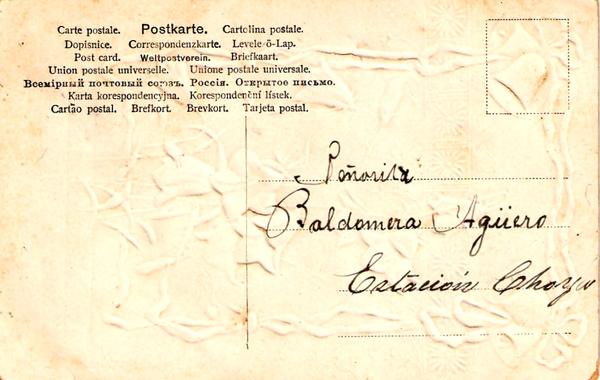 Carte postale. Postkarte. Cartolina postale.
Dopisnice. Correspondenzkarte. Levele-ő-Lap.
Post card. Weltpostverein. Briefkaart.
Union postale universelle. Unione postale universale.
Всемірный почтовый союзъ. Россія. Открытое письмо.
Karta korespondencyjna. Korespondenční lístek.
Cartão postal. Brefkort. Brevkort. Tarjeta postal.
Señorita
Baldomera Agüero
Estación